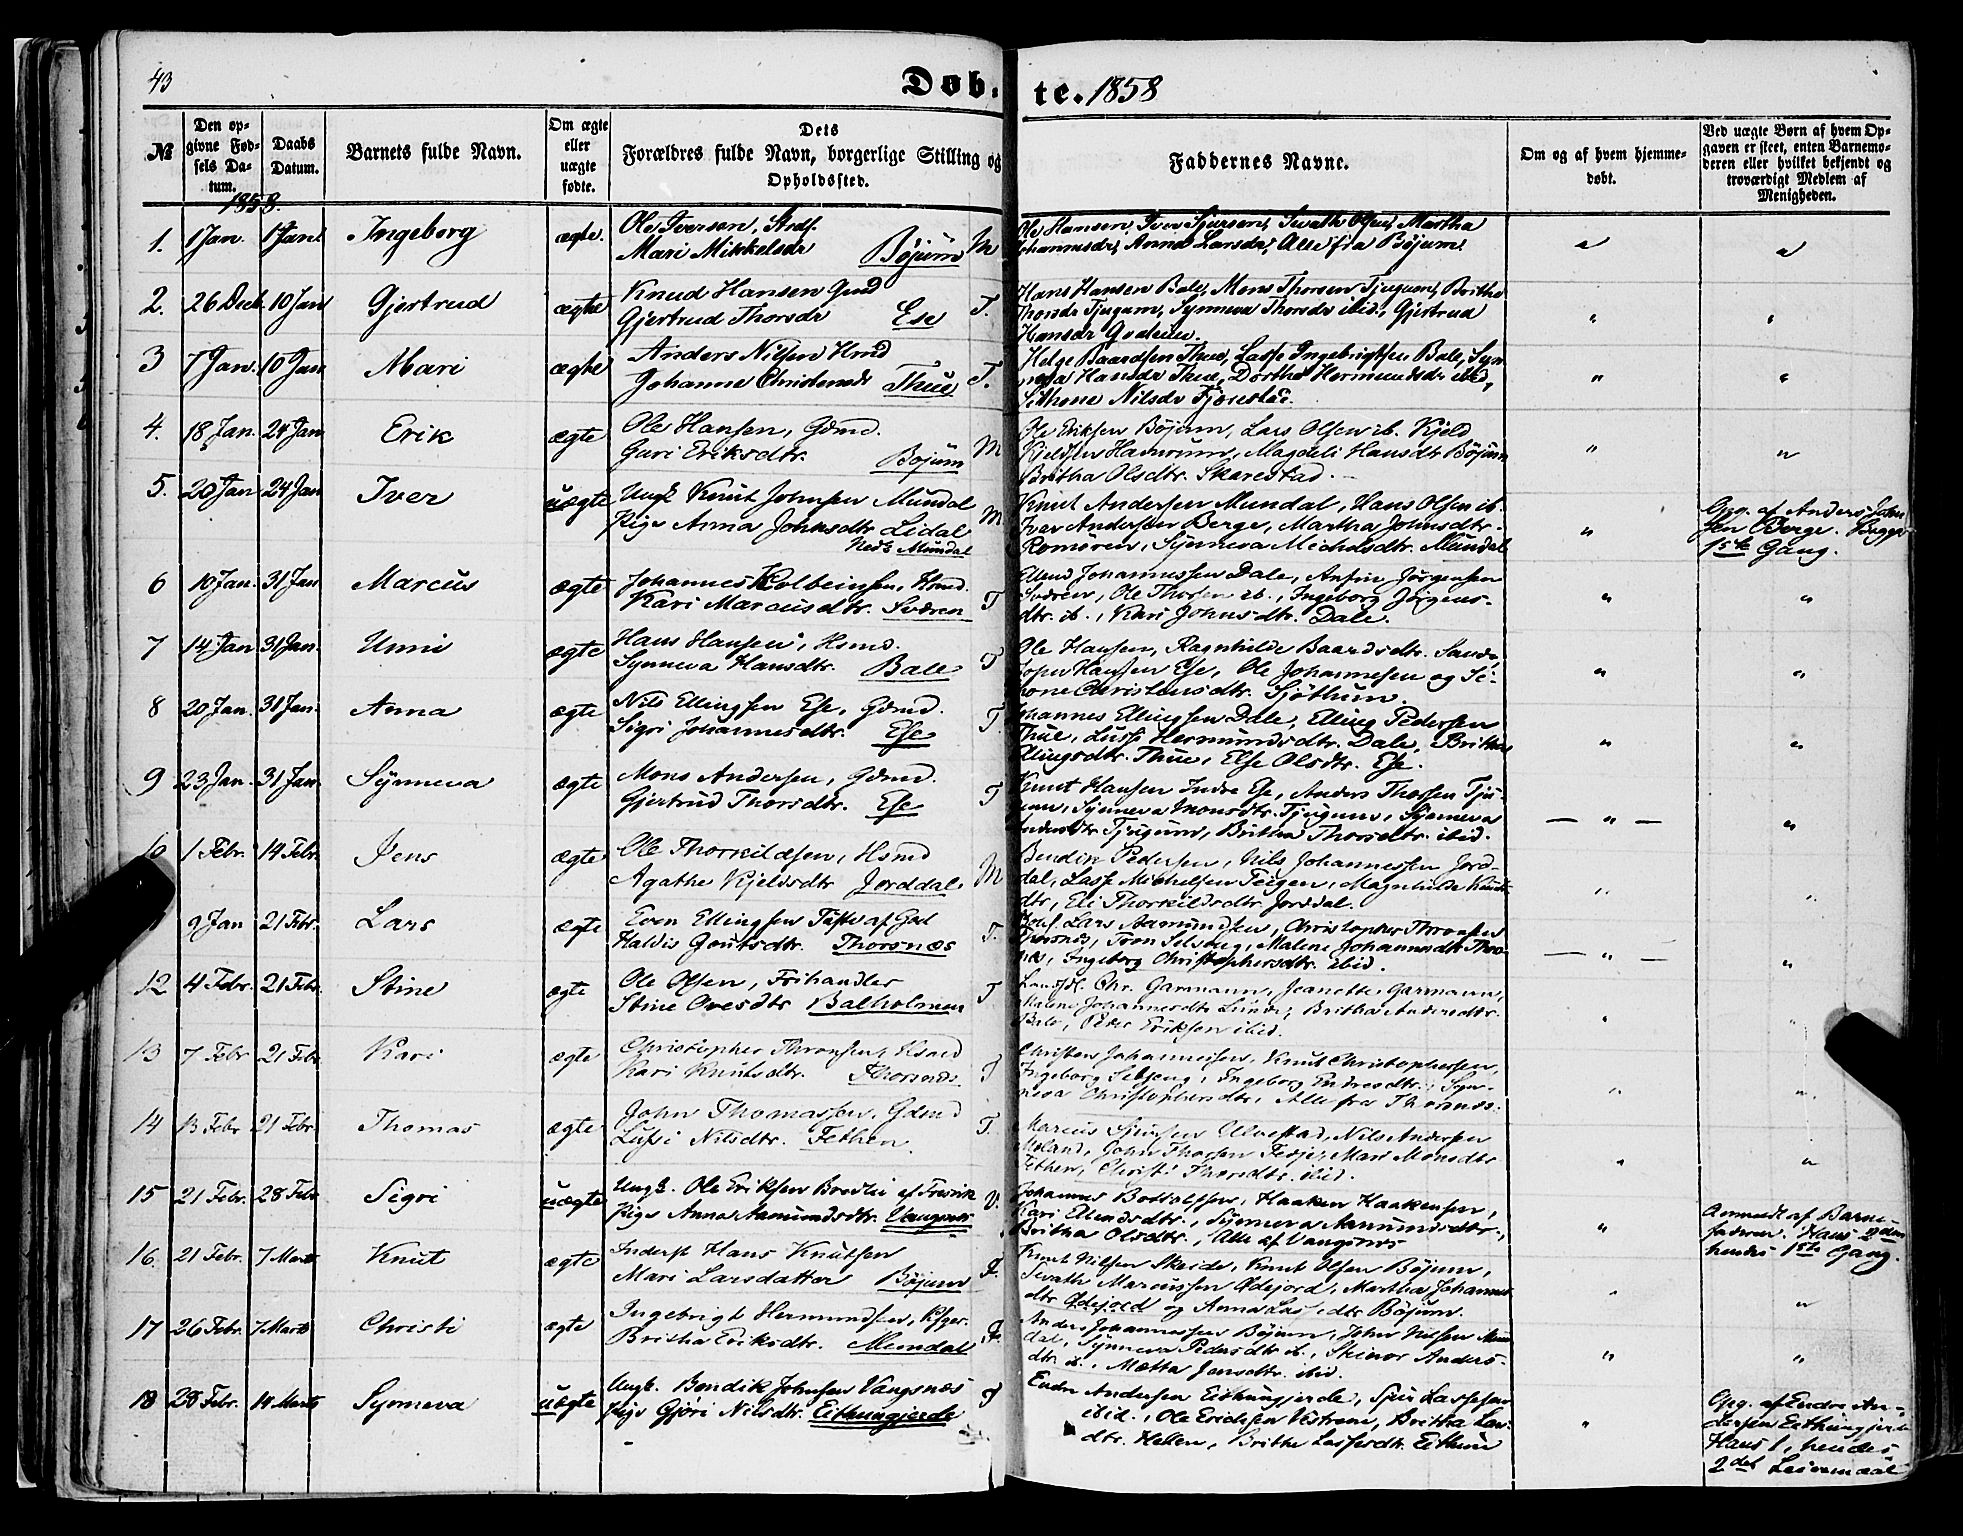 43
Døb-te. 1858
№
Den opgivne Fødsels Datum.
Daabs Datum.
Barnets fulde Navn.
Om ægte eller uægte fødte.
Dets Forældres fulde Navn, borgerlige Stilling og Opholdssted.
Faddernes Navne.
Om og af hvem hjemmedøbt.
Ved uægte Børn af hvem Opgaven er skeet, enten Barnemoderen eller hvilket bekjendt og troværdigt Medlem af Menigheden.
1858.
1. 1 Jan. 1 Jan. Ingeborg ægte. Ole Iversen,
Mari Mikkelsdr Bøjum M
Ole Hansen, Iver Sjursen, Sevath Olsen, Martha
Johannesdr, Anna Larsdr, Alle fra Bøjum
2. 26 Decb. 10 Jan Gjertrud ægte Knud Hansen Gmd
Gjertrud Thorsdr Ese T.
Hans Hansen Bale, Mons Thorsen Tjugum, Britha
Thorsdr Tjugum, Synneva Thorsdr ibid., Gjertrud
Hansdr
3 7 Jan. 10 Jan Mari ægte Anders Nilsen Hmd
Johanne Christensdr Thue T.
Helge Baardsen Thue, Lasse Ingebrigtsen Bale, Synneva Hansdr Thue, Dorthe Hermundsdr ibid,
Sithone Nilsdr Fjærestad.
4. 18 Jan. 24 Jan Erik ægte Ole Hansen, Gdmd.
Guri Eriksdtr. Bojum M
Ole Eriksen Bøjum, Lars Olsen ib. Kjeld
Kjeldsen Hamrum, Magdeli Hansdtr Bøjum
Britha Olsdtr. Skarestad.
5. 20 Jan 24 Jan Iver uægte Ungk. Knut Johnsen Mundal
Pige Anna Johnsdtr Lidal M
Neds Mundal
Knut Andersen Mundal, Hans Olsen ib.
Iver Andersen Berge, Martha Johnsdtr.
Romøren, Synneva Michelsdtr. Mundal
Opg. af Anders Johnsen Berge. Begges
1ste Gang.
6 10 Jan. 31 Jan Marcus ægte Johannes Kolbeinsen, Hsmd.
Kari Marcusdtr. Sværen T
Ellend Johannessen Dale, Anfin Jørgensen
Sværen, Ole Thorsen ib., Ingeborg Jørgensdtr. ib., Kari Johnsdtr. Dale.
7 14 Jan 31 Jan. Unni ægte Hans Hansen, Hsmd.
Synneva Hansdtr. Bale T
Ole Hansen, Ragnhilde Baardsdtr. Sande,
Hansen Ese, Ole Johannesen og Sithone Christensdtr. Sjøthun.
8 20 Jan. 31 Jan. Anna ægte Nils Ellingsen Ese, Gdmd.
Sigri Johannesdtr. Ese T.
Johannes Ellingsen Dale, Elling Pedersen
Thue, Lussi Hermundsdtr. Dale, Britha
Ellingsdtr. Thue, Else Olsdtr. Ese.
9 23 Jan. 31 Jan. Synneva ægte Mons Andersen, Gdmd.
Gjertrud Thorsdtr. Ese T
Knut Hansen Indre Ese, Anders Thorsen Tjugum, Synneva Monsdtr. Tjugum, Synneva
Andersdtr Tjugum, Britha Thorsdtr. ibid.
10 1 Febr. 14 Febr. Jens ægte Ole Thorkildsen, Hsmd
Agathe Kjeldsdtr Jorddal. M
Bendik Pedersen, Nils Johannessen Jorddal, Lasse Michelsen Teigen, Magnhilde Knutsdtr, Eli Thorkildsdtr Jorddal.
9 Jan 21 Febr. Lars ægte Even Ellingsen
Haldis Goutsdtr. Thorsnæs T.
Lars Aamundsen, Christopher Thronsen
Thorsnæs, Tron Selseng, Malene Johannesdtr Thorsnæs, Ingeborg Christophersdtr. ibid.
12 4 Febr. 21 Febr. Stine ægte Ole Olsen, Frihandler
Stine Ovesdtr Balholmen T
Chr. Garmann, Jeanette Garmann,
Malene Johannesdtr Lunde, Britha Andersdtr.
Bale, Peder Eriksen ibid.
13 7 Febr 21 Febr Kari ægte Christopher Thronsen, Hsmd
Kari Knutsdtr. Thorsnæs. T
Christen Johannessen, Knut Christophersen,
Ingeborg Selseng, Ingeborg Endresdtr., Synneva Christophersdtr, Alle fra Thorsnæs.
14 13 Febr 21 Febr Thomas ægte John Thomassen, Gdmd
Lussi Nilsdtr. Fethen. T.
Marcus Sjursen Ulvestad, Nils Andersen
Meland, John Thorsen Fedje, Mari Monsdtr
Fethen, Christi Thorsdtr. ibid.
15 21 Febr. 28 Febr Sigri uægte Ungk. Ole Eriksen
Pige Anna Aamundsdtr. Vangsnæs V.
Johannes Bottolfsen, Haaken Haakensen,
Kari Ellendsdtr., Synneva Aamundsdtr.,
Britha Olsdtr., Alle af Vangsnæs
Anmeldt af Barnefaderen. Hans 2den
hendes 1ste Gang.
16. 21 Febr. 7 Marts Knut ægte Inderst Hans Knutsen
Mari Larsdatter Bøjum F.
Knut Nilsen Skeide, Knut Olsen Bøjum,
Sevath Marcussen Ødejord, Martha Johannesdtr Ødejord og Anna Lassedtr Bøjum.
17 26 Febr. 7 Marts Christi ægte Ingebrigt Hermundsen,
Britha Eriksdtr. Mundal F.
Anders Johannessen Bøjum, John Nilsen Mundal, Synneva Pedersdtr ib., Skinor Andersdtr ib., Metta Jensdtr. ibid.
18 28 Febr. 14 Marts Synneva uægte Ungk. Bendik Johnsen Vangsnæs
Pige Gjøri Nilsdtr. Eithungjerde T
Endre Andersen Eithungjerde, Sjur Lassesen
ibid., Ole Ericksen Vestrem, Britha Larsdtr. Hellen, Brithe Lassesdtr. Eithun
Opg. af Endre Andersen Eithungjerde
Hans 1, hendes
2det Leiermaal